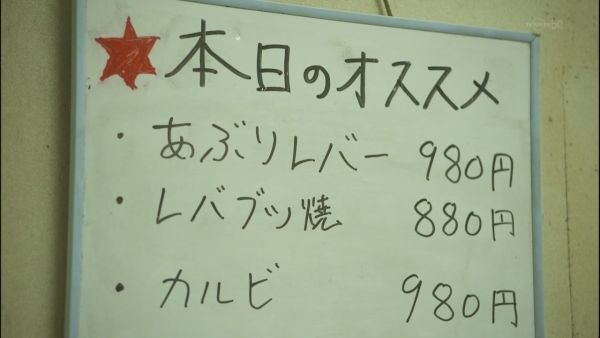 本日のオススメ
・あぶりレバー 980円
・レバブツ焼 880円
・カルビ 980円